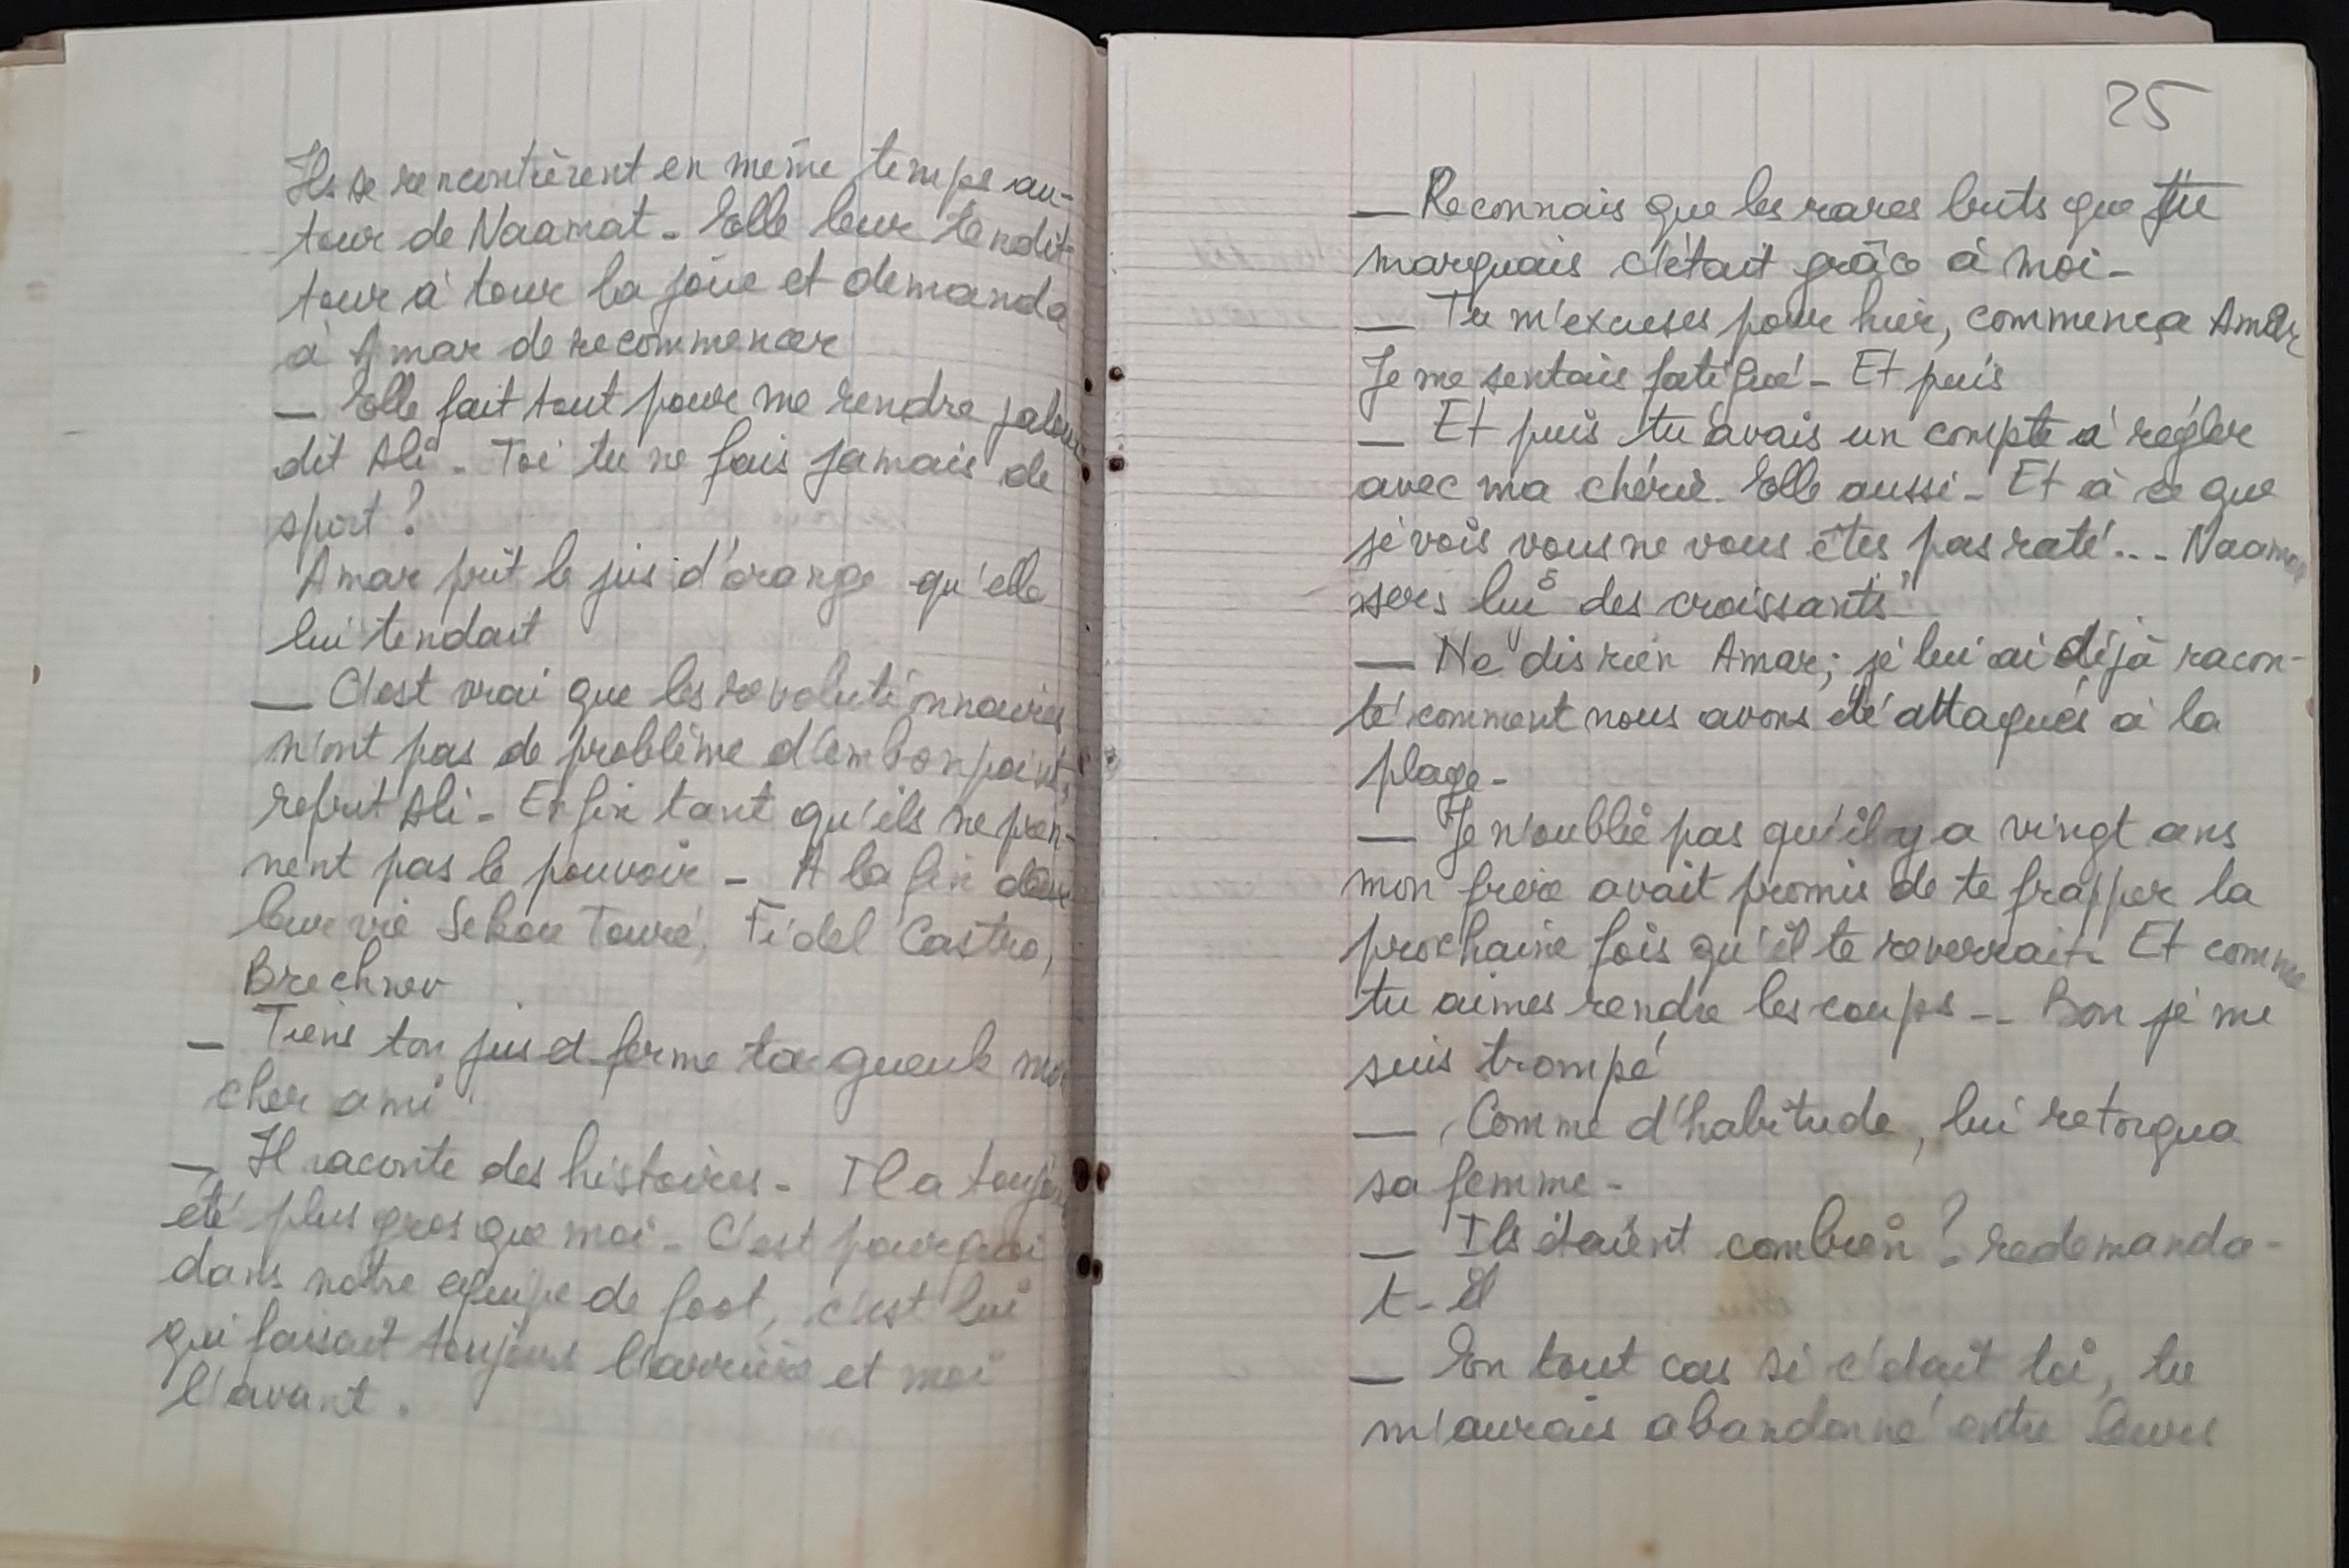 Ils se rencontrèrent en même temps au-
tour de Naamat - Elle leur tendit
tour à tour la joue et demanda
à Amar de recommencer
— Elle fait tout pour me rendre jaloux
dit Ali - Toi tu ne fais jamais de
sport ?
Amar prit le jus d'orange qu'elle
lui tendait
— C'est vrai que les revolutionnaires
n'ont pas de problème d'embonpoint,
reprit Ali - Enfin tant qu'ils ne pren-
nent pas le pouvoir - A la fin de
leur vie Sekou Touré, Fidel Castro,
Brechnev
— Tiens ton jus et ferme ta gueule mon
cher ami
— Il raconte des histoires - Il a toujours
été plus gros que moi - C'est pourquoi
dans notre equipe de foot, c'est lui
qui faisait toujours l'arrière et moi
l'avant.
25
— Reconnais que les rares buts que tu
marquais c'était grâce à moi -
— Tu m'excuses pour hier, commença Amar
Je me sentais fatigué - Et puis
— Et puis tu avais un compte à régler
avec ma chérie. Elle aussi - Et à ce que
je vois vous ne vous êtes pas raté... Naamat
sers lui des croissants
— Ne dis rien Amar; je lui ai déjà racon-
té comment nous avons été attaqués à la
plage -
— Je n'oublie pas qu'il y a vingt ans
mon frère avait promis de te frapper la
prochaine fois qu'il te reverrait. Et comme
tu aimes rendre les coups -- Bon je me
suis trompé
— Comme d'habitude, lui retorqua
sa femme -
— Ils étaient combien ? redemanda-
t-il
— En tout cas si c'était toi, tu
m'aurais abandonné entre leurs